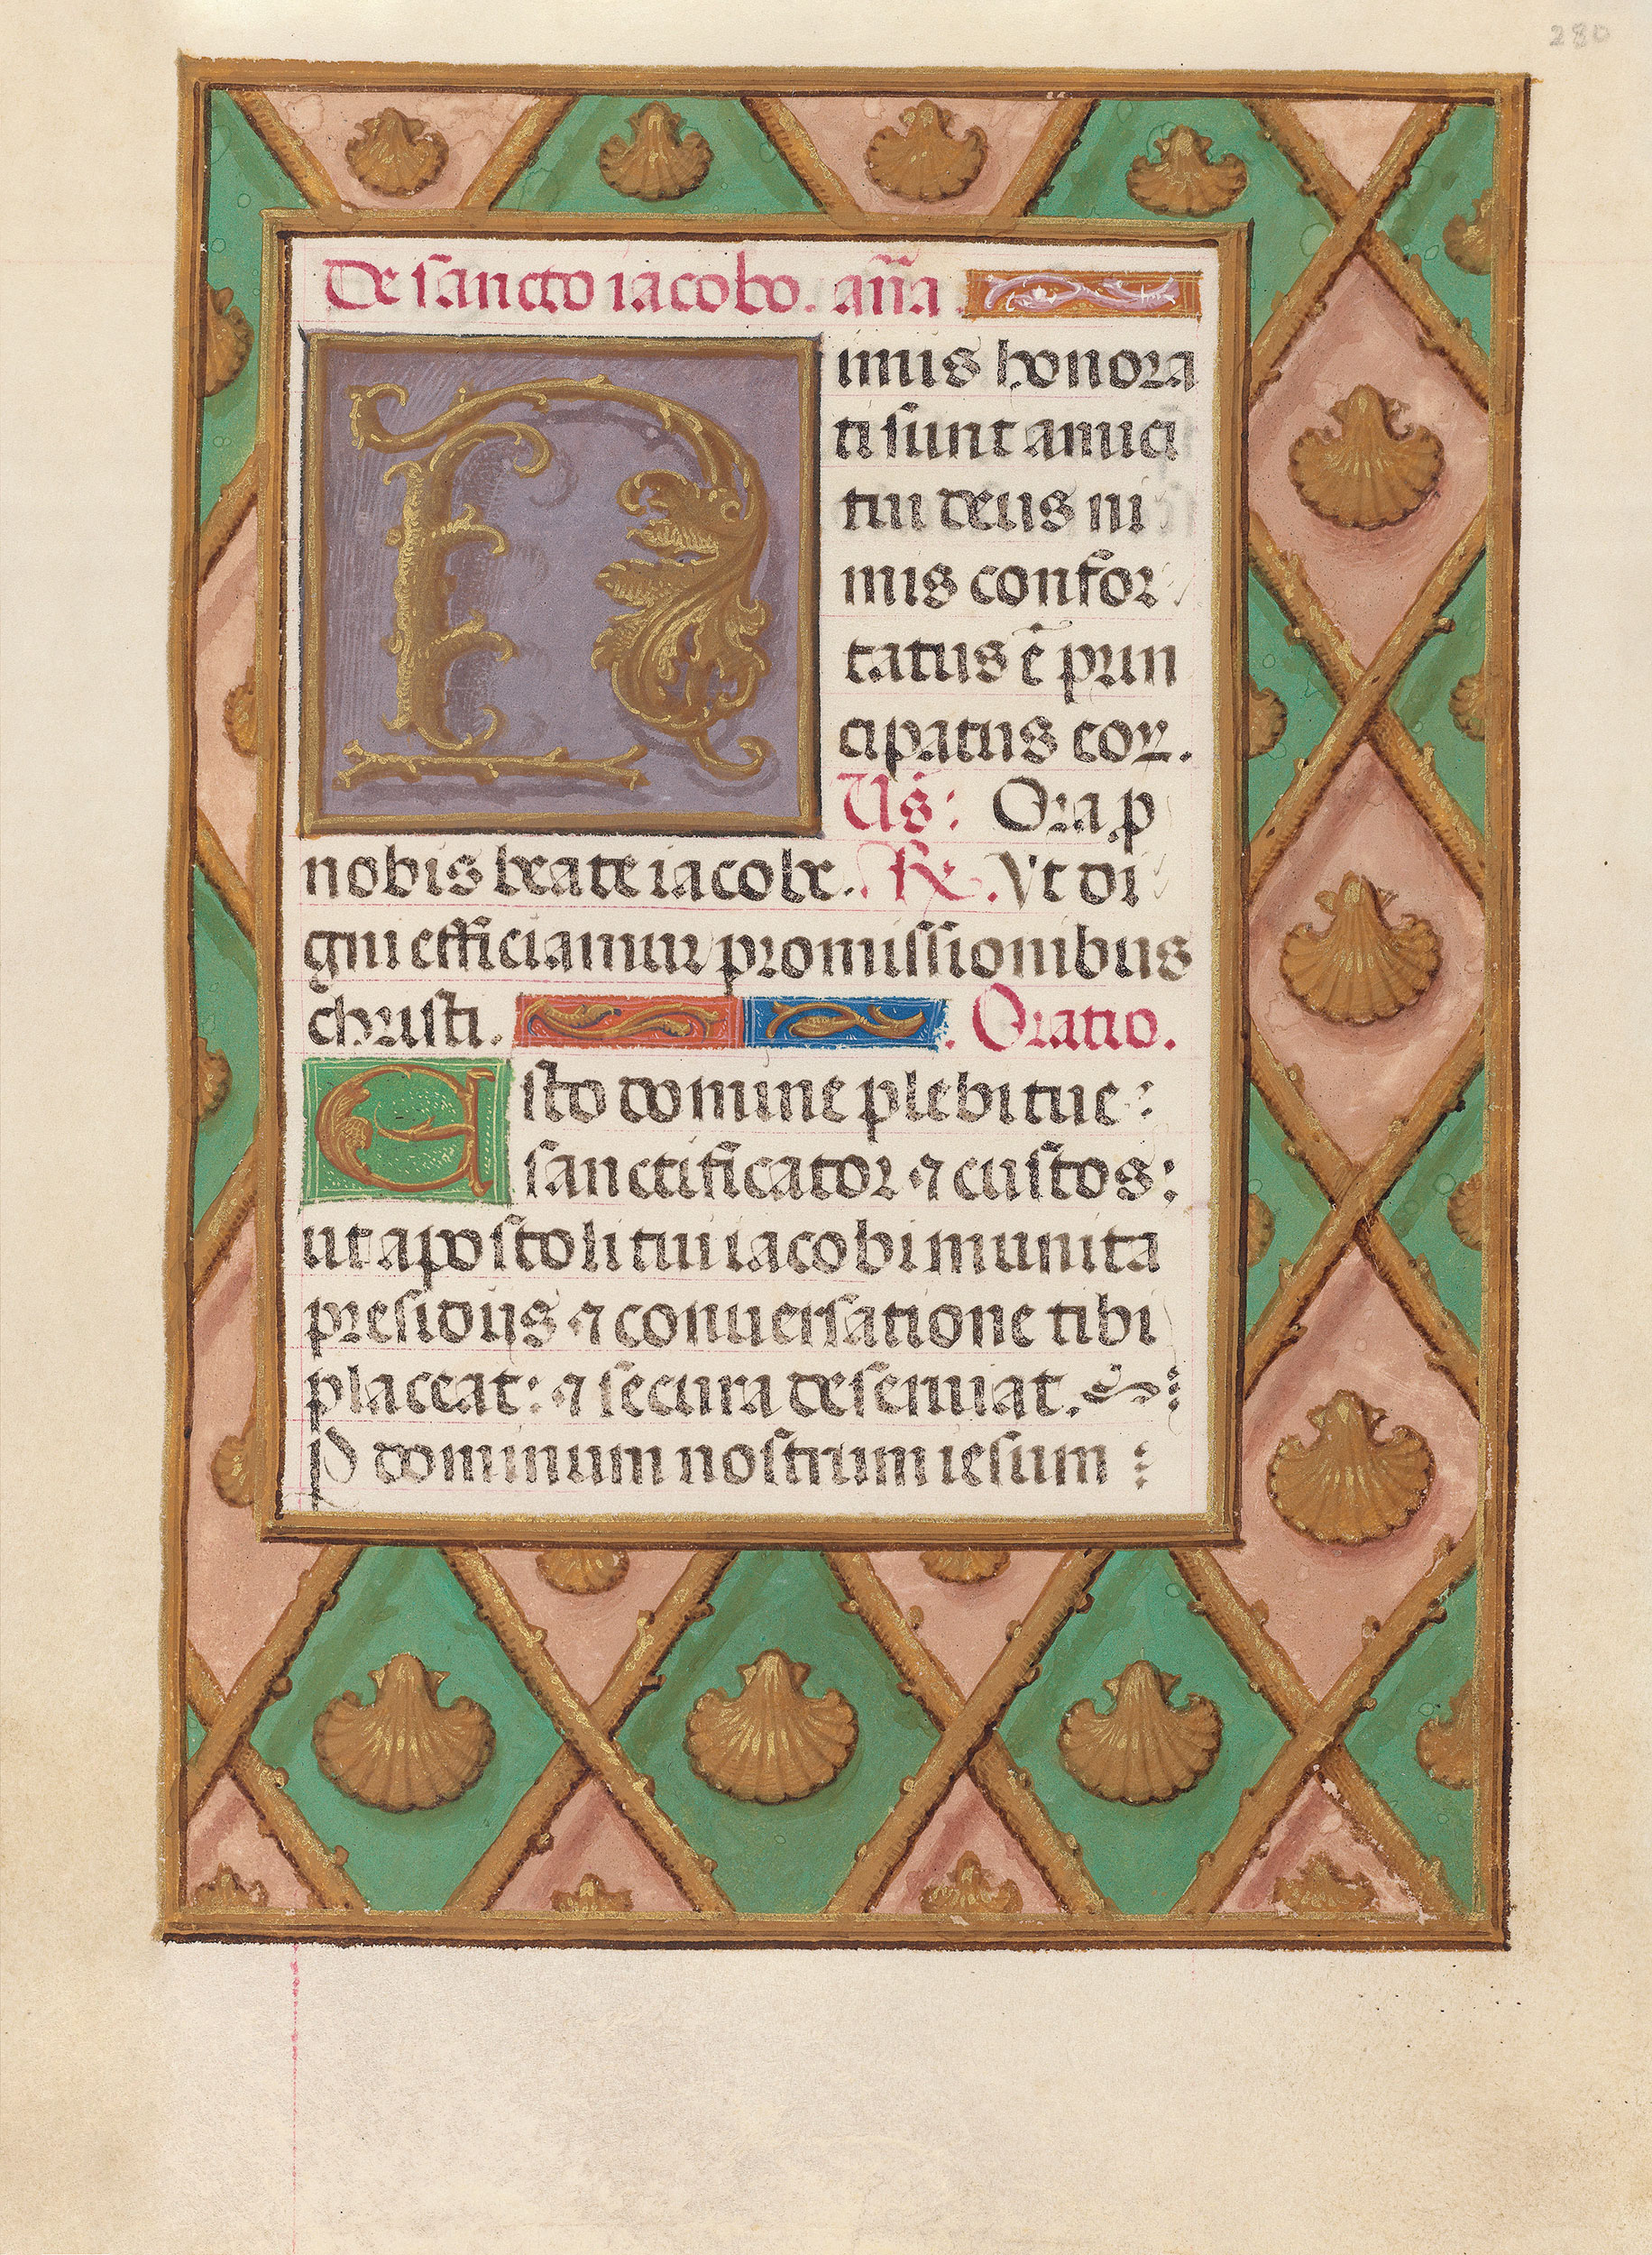 280
De sancto iacobo. an̄a.
Nimis honora
ti sunt amici
tui deus ni
mis confor
tatus ē prin
cipatus eoꝝ.
Us: Ora p
nobis beate iacobe. ℟. Vt di
gni efficiamur promissionibus
christi. Oratio.
Esto domine plebi tue:
sanctificator ⁊ custos:
ut apostoli tui iacobi munita
presidiis ⁊ conuersatione tibi
placeat: ⁊ secura deseruiat.
P dominum nostrum iesum